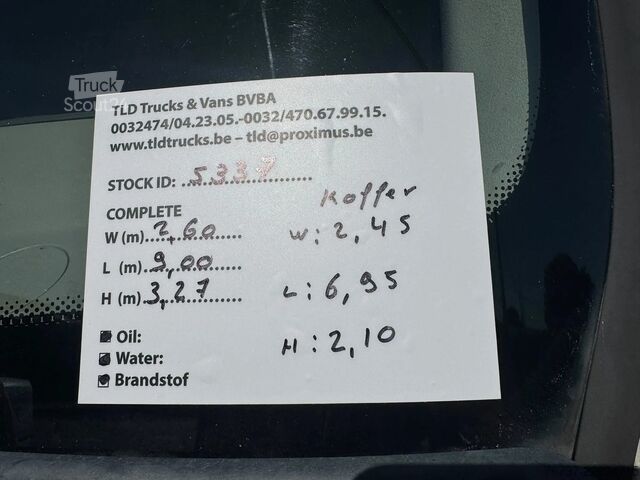 Truck
Scout24
TLD Trucks & Vans BVBA
0032474/04.23.05.-0032/470.67.99.15.
www.tldtrucks.be – tld@proximus.be
STOCK ID: 5337
COMPLETE
W (m) 2,60
L (m) 9,00
H (m) 3,27
Koffer
W: 2,45
L: 6,95
H: 2,10
Oil:
Water:
Brandstof